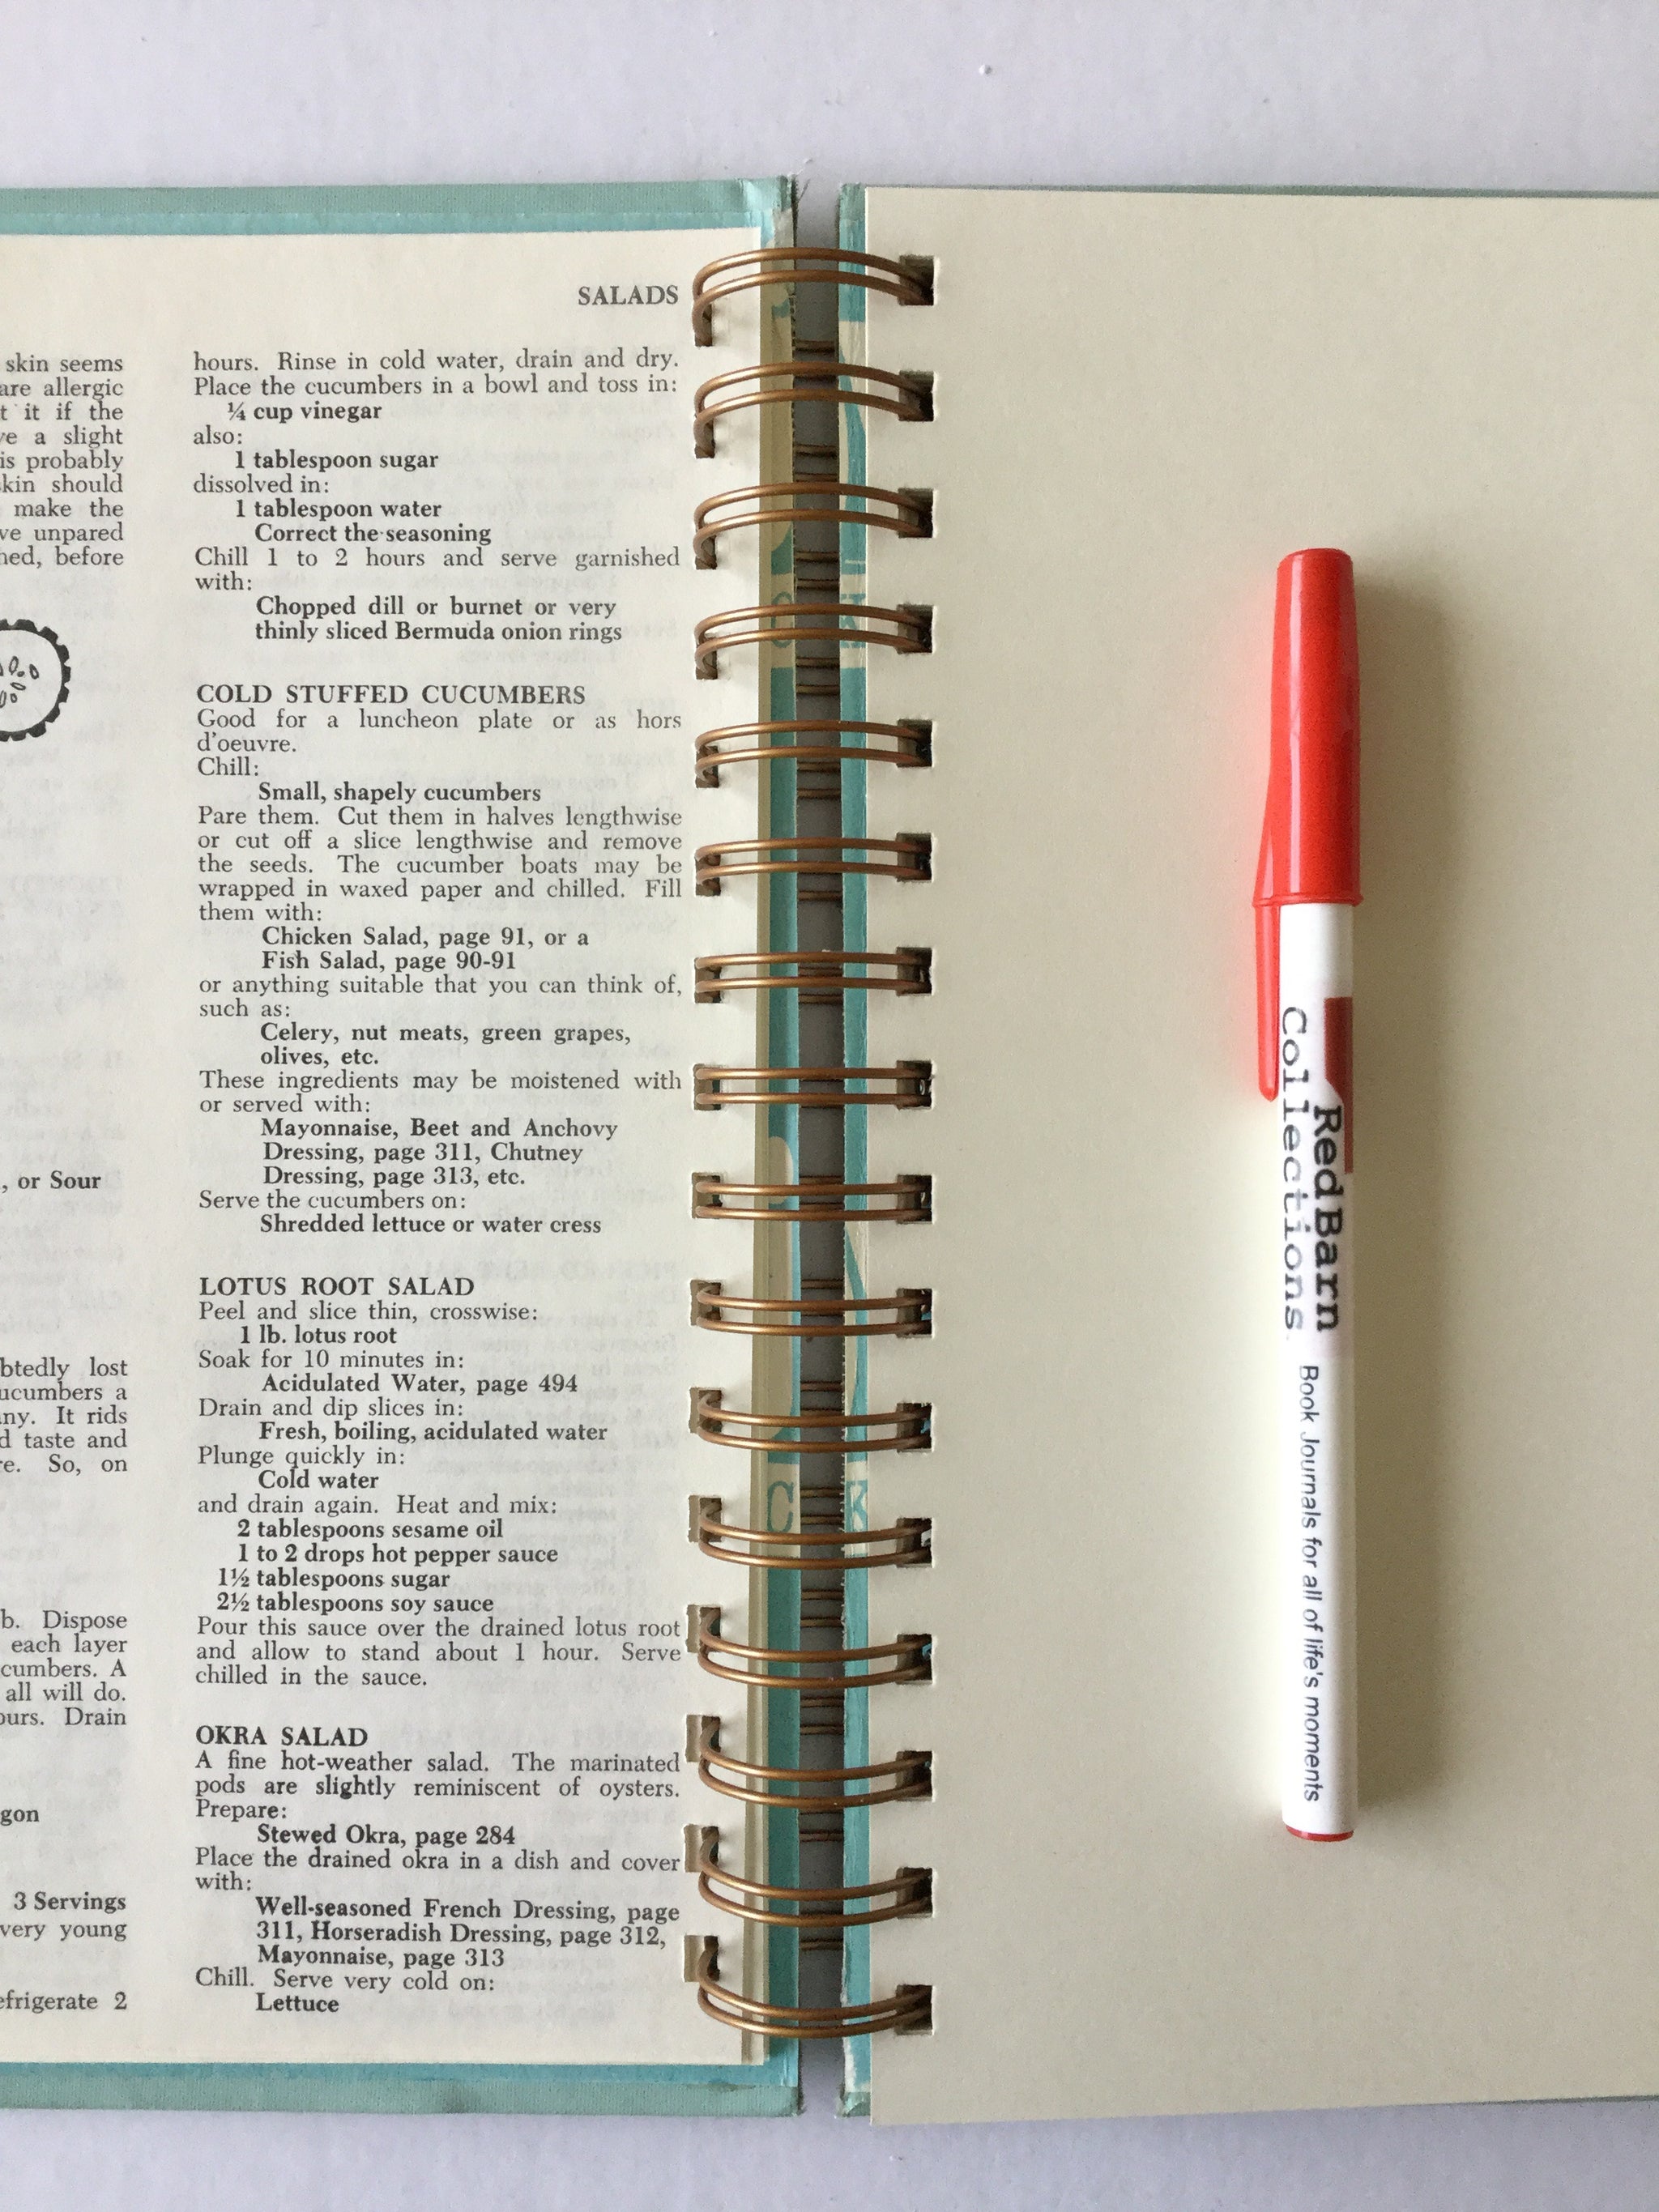 SALADS
skin seems
are allergic
it if the
a slight
is probably
skin should
make the
unpared
before
, or Sour
lost
cucumbers a
It rids
taste and
So, on
Dispose
each layer
cucumbers. A
all will do.
Drain
3 Servings
very young
refrigerate 2
hours. Rinse in cold water, drain and dry.
Place the cucumbers in a bowl and toss in:
¼ cup vinegar
also:
1 tablespoon sugar
dissolved in:
1 tablespoon water
Correct the seasoning
Chill 1 to 2 hours and serve garnished
with:
Chopped dill or burnet or very
thinly sliced Bermuda onion rings
COLD STUFFED CUCUMBERS
Good for a luncheon plate or as hors
d'oeuvre.
Chill:
Small, shapely cucumbers
Pare them. Cut them in halves lengthwise
or cut off a slice lengthwise and remove
the seeds. The cucumber boats may be
wrapped in waxed paper and chilled. Fill
them with:
Chicken Salad, page 91, or a
Fish Salad, page 90-91
or anything suitable that you can think of,
such as:
Celery, nut meats, green grapes,
olives, etc.
These ingredients may be moistened with
or served with:
Mayonnaise, Beet and Anchovy
Dressing, page 311, Chutney
Dressing, page 313, etc.
Serve the cucumbers on:
Shredded lettuce or water cress
LOTUS ROOT SALAD
Peel and slice thin, crosswise:
1 lb. lotus root
Soak for 10 minutes in:
Acidulated Water, page 494
Drain and dip slices in:
Fresh, boiling, acidulated water
Plunge quickly in:
Cold water
and drain again. Heat and mix:
2 tablespoons sesame oil
1 to 2 drops hot pepper sauce
1½ tablespoons sugar
2½ tablespoons soy sauce
Pour this sauce over the drained lotus root
and allow to stand about 1 hour. Serve
chilled in the sauce.
OKRA SALAD
A fine hot-weather salad. The marinated
pods are slightly reminiscent of oysters.
Prepare:
Stewed Okra, page 284
Place the drained okra in a dish and cover
with:
Well-seasoned French Dressing, page
311, Horseradish Dressing, page 312,
Mayonnaise, page 313
Chill. Serve very cold on:
Lettuce
Red Barn
Collections
Book Journals for all of life's moments